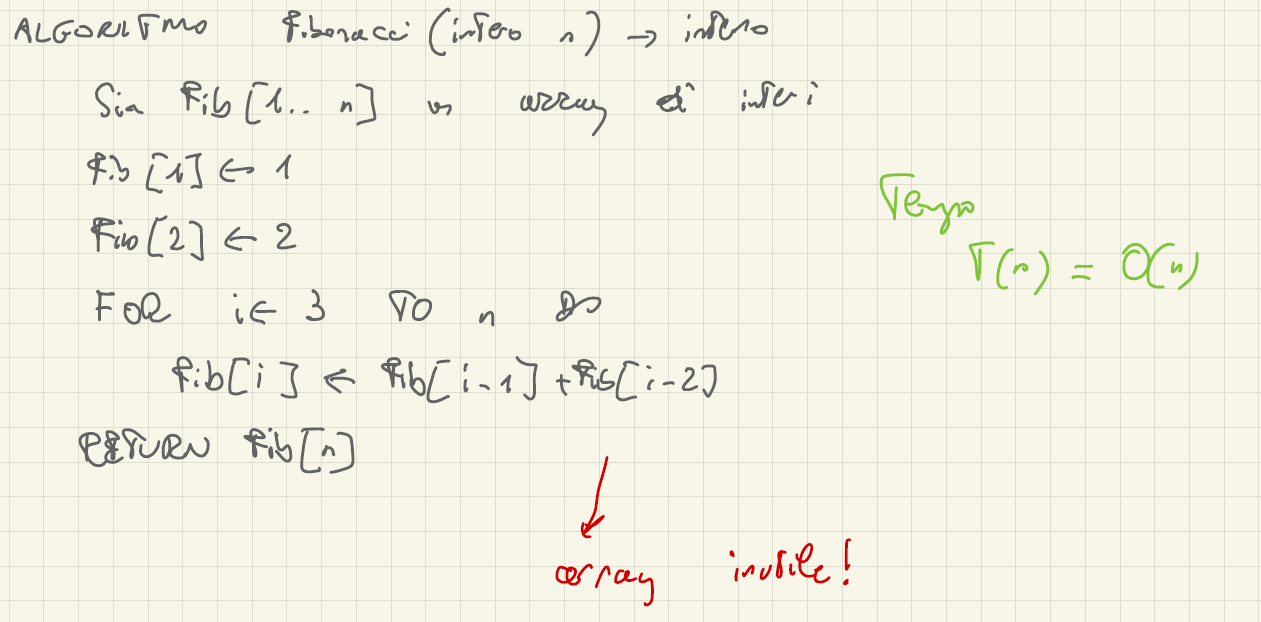 ALGORITMO Fibonacci (intero n) → intero
Sia Fib[1.. n] un array di interi
Fib [1] ← 1
Fib[2] ← 2
Tempo
T(n) = O(n)
FOR i ← 3 TO n DO
Fib[i] ← Fib[i-1] + Fib[i-2]
RETURN Fib[n]
array inutile!